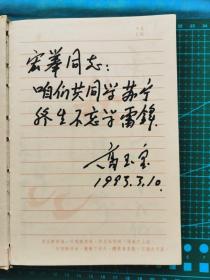 宏举同志:
咱们共同学苏宁
终生不忘学雷锋.
高玉宝
1993.3.10.